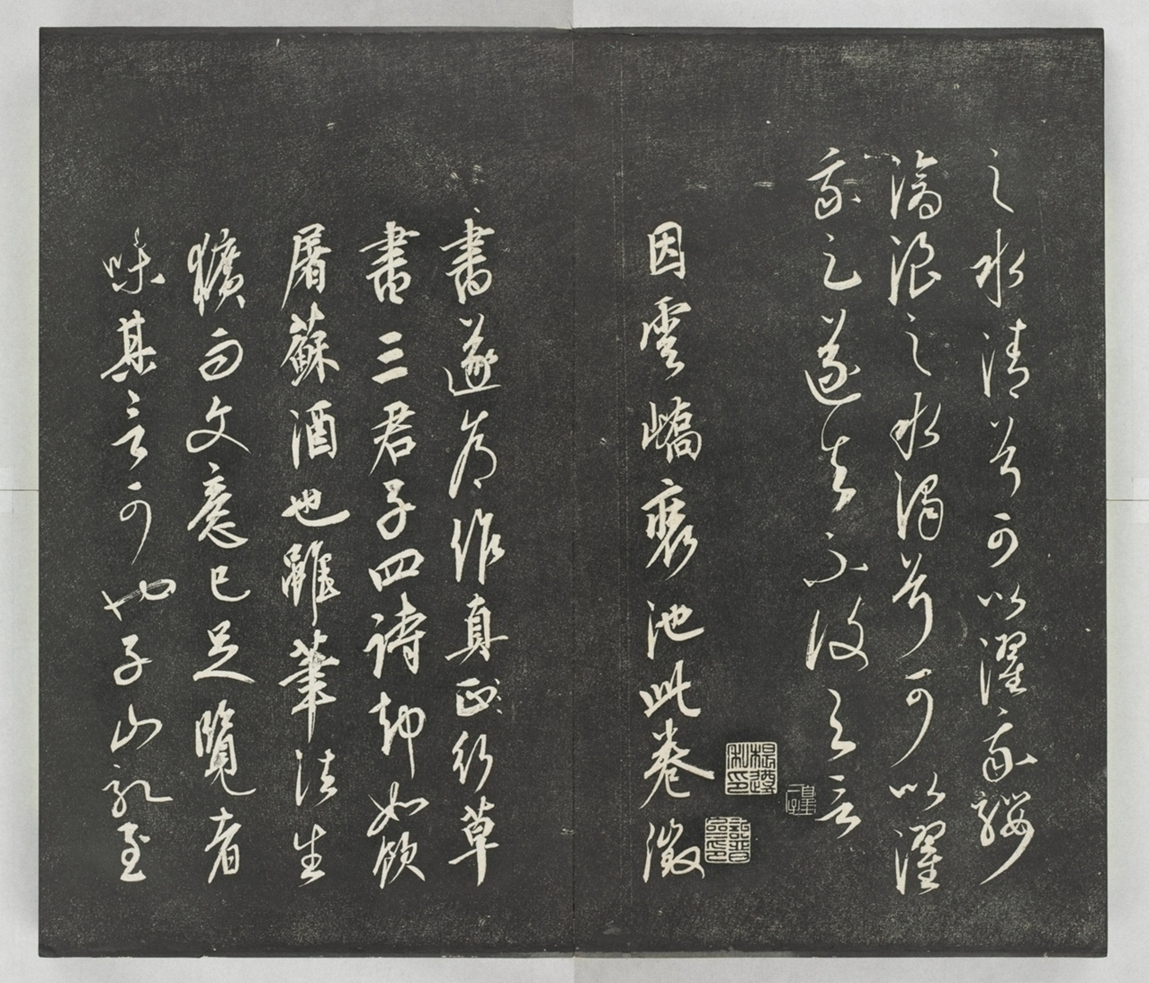 之水清兮可以濯我纓
滄浪之水濁兮可以濯
我足遂去不復與言
因雲嶠裒池此卷徵
書遂為作真正行草
書三君子四詩却如飲
屠蘇酒也雖筆法生
獷而文意已足覽者
味其言可也子山記至
楊遵私印